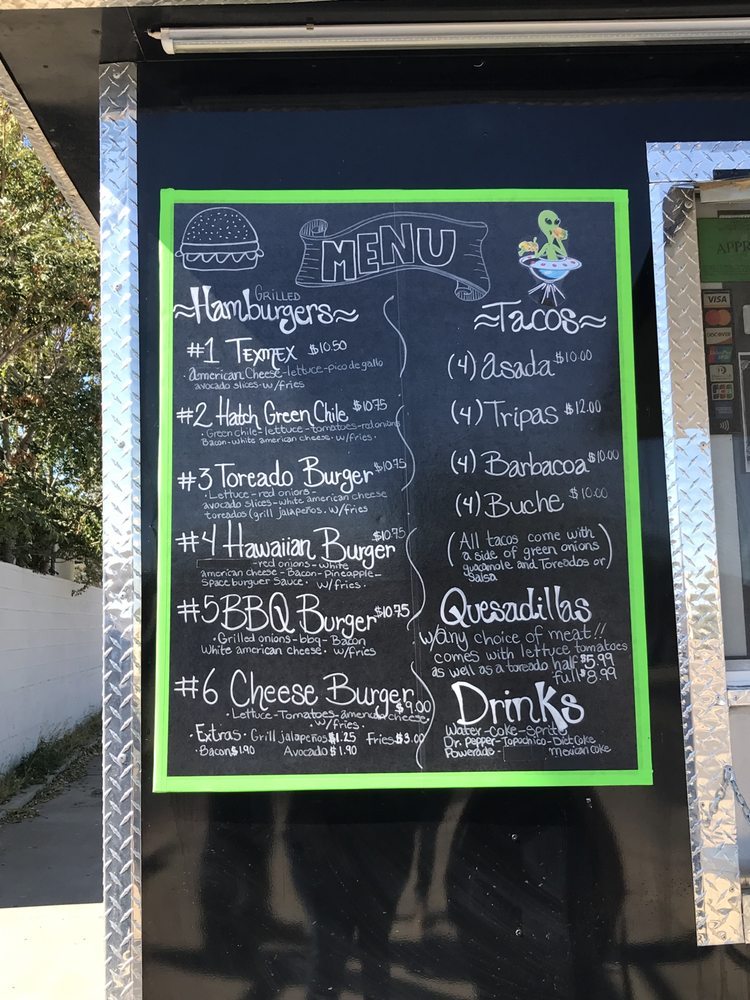 MENU
GRILLED
~Hamburgers~
#1 TexMEX $10.50
American Cheese-lettuce-pico de gallo
avocado slices-w/fries
#2 Hatch Green Chile $10.75
Green chile-lettuce-tomatoes-red onions
Bacon-white american cheese. w/fries.
#3 Toreado Burger $10.75
Lettuce-red onions-
avocado slices-white american cheese
toreados (grill jalapeños. w/fries
#4 Hawaiian Burger $10.75
-red onions-white
american cheese-Bacon-Pineapple-
Space burguer Sauce. w/fries.
#5 BBQ Burger $10.75
Grilled onions-bbq-Bacon
White american cheese. w/fries
#6 Cheese Burger $9.00
Lettuce-Tomatoes-american cheese.
w/fries.
Extras. Grill jalapeños $1.25 Fries $3.00
Bacon $1.90 Avocado $1.90
≈Tacos≈
(4) Asada $10.00
(4) Tripas $12.00
(4) Barbacoa $10.00
(4) Buche $10.00
(All tacos come with
a side of green onions
guacamole and Toreados or
Salsa)
Quesadillas
w/any choice of meat!!
comes with lettuce tomatoes
as well as a toreado half $5.99
full $8.99
Drinks
Water-coke-Sprite
Dr. pepper-Topochico-Diet Coke
Powerade- mexican coke
APPR
VISA
DISCOVER